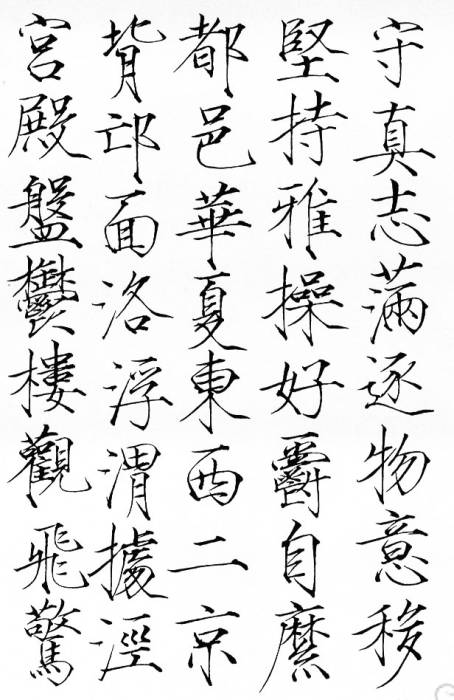 守真志滿逐物意移
堅持雅操好爵自縻
都邑華夏東西二京
背邙面洛浮渭據涇
宮殿盤鬱樓觀飛驚